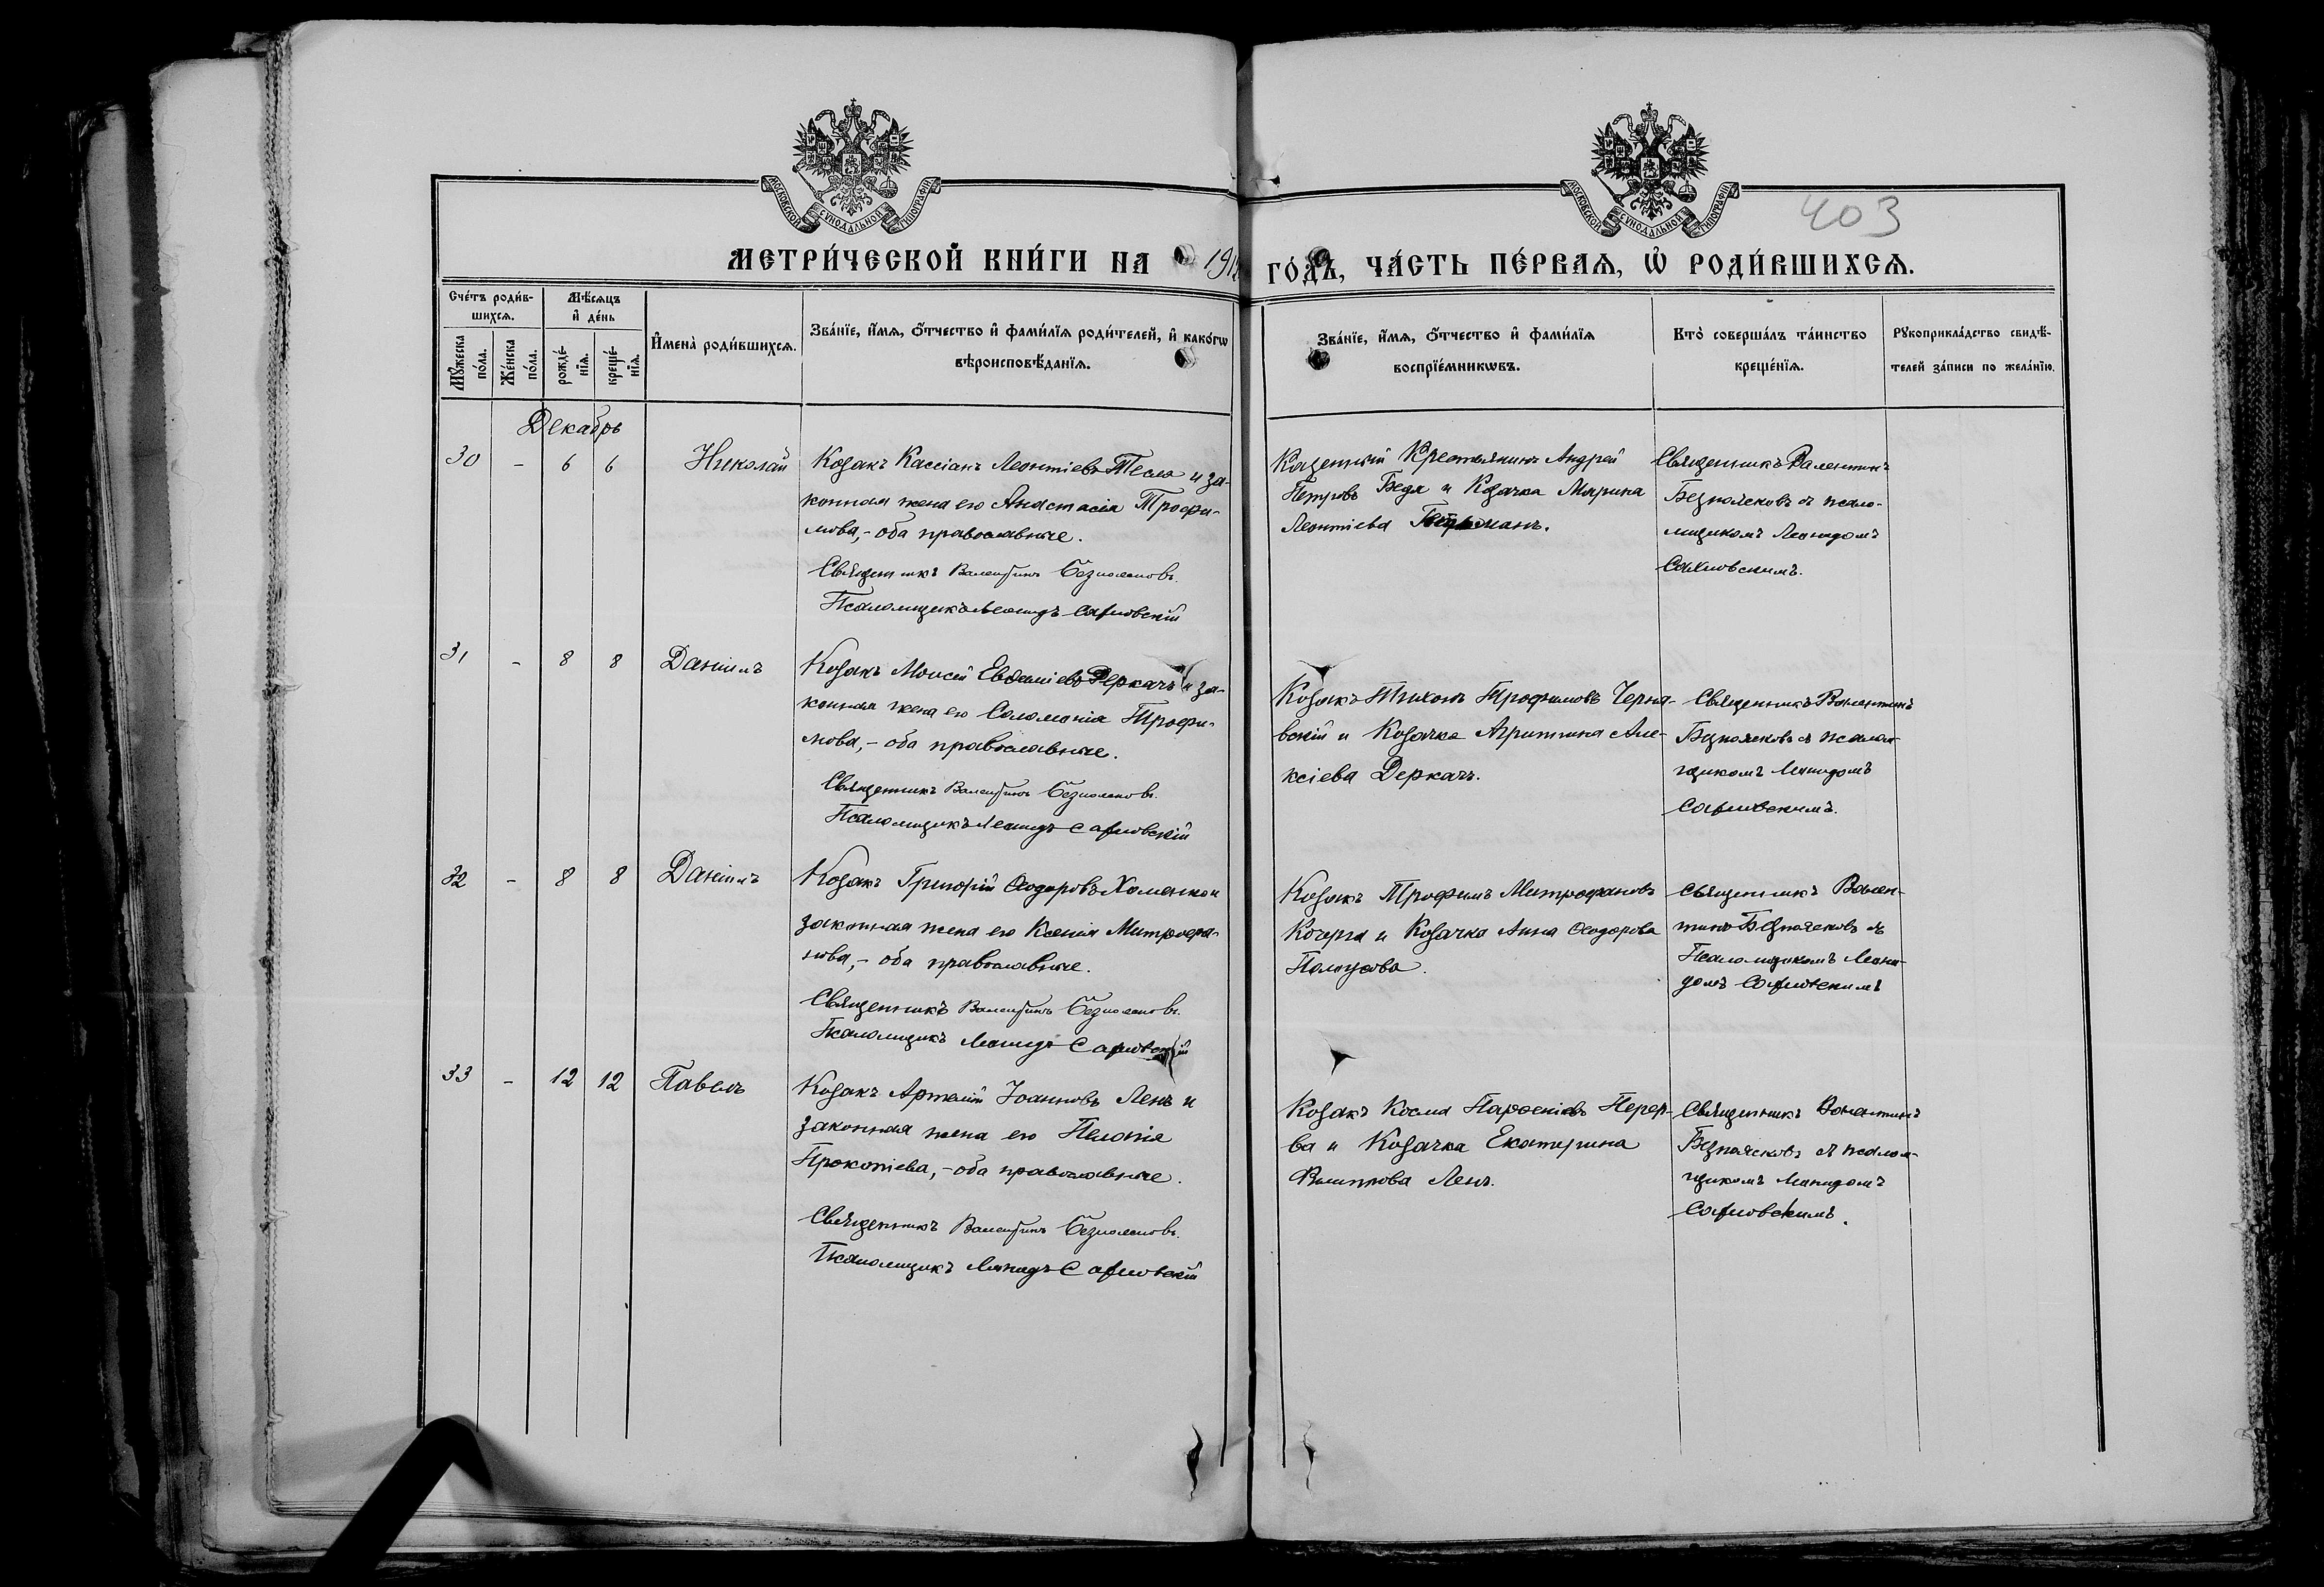 МОСКОВСКОЙ СѴНОДАЛЬНОЙ ТИПОГРАФІИ
МОСКОВСКОЙ СѴНОДАЛЬНОЙ ТИПОГРАФІИ
403
МЕТРИ́ЧЕСКОЙ КНИ́ГИ НА 191
ГО́ДЪ, ЧА́СТЬ ПЕ́РВАЯ, Ѽ РОДИ́ВШИХСЯ.
Сче́тъ роди́в-
шихся.
Мѣ́сяцъ
и҆ де́нь
Мꙋ́жеска
по́ла.
Же́нска
по́ла.
рожде́-
нїя.
креще́-
нїя.
И҆мена̀ роди́вшихся.
Зва́нїе, и҆́мя, ѻ҆́тчество и҆ фами́лїя роди́телей, и҆ како́гѡ
вѣроисповѣ́данїя.
Зва́нїе, и҆́мя, ѻ҆́тчество и҆ фами́лїя
воспрїе́мникѡвъ.
Кто̀ соверша́лъ та́инство
креще́нїя.
Рꙋкоприкла́дство свидѣ́-
телей за́писи по жела́нїю.
Декабрь
30 - 6 6 Николай
Козакъ Кассіанъ Леонтіевъ Тесла и за-
конная жена его Анастасія Трофи-
мова, - оба православные.
Священникъ Валентинъ Безпалековъ.
Псаломщикъ Леонидъ Сахновскій
Казенный Крестьянинъ Андрей
Петровъ Беда и Козачка Марина
Леонтіева Гетьманъ.
Священникъ Валентинъ
Безпалековъ съ псало-
мщикомъ Леонидомъ
Сахновскимъ.
31 - 8 8 Даніилъ
Козакъ Моисей Евфиміевъ Деркачъ и за-
конная жена его Соломонія Трофи-
мова, - оба православные.
Священникъ Валентинъ Безпалековъ.
Псаломщикъ Леонидъ Сахновскій
Козакъ Тихонъ Трофимовъ Черня-
вскій и Козачка Агрипина Але-
ксіева Деркачъ.
Священникъ Валентинъ
Безпалековъ съ псалом-
щикомъ Леонидомъ
Сахновскимъ.
32 - 8 8 Даніилъ
Козакъ Григорій Ѳеодоровъ Хоменко и
законная жена его Ксенія Митрофа-
нова, - оба православные.
Священникъ Валентинъ Безпалековъ.
Псаломщикъ Леонидъ Сахновскій
Козакъ Трофимъ Митрофановъ
Кочерга и Козачка Анна Ѳеодорова
Священникъ Вален-
тинъ Безпалековъ съ
Псаломщикомъ Леони-
домъ Сахновскимъ
33 - 12 12 Павелъ
Козакъ Артемій Іоанновъ Ленъ и
законная жена его Пелагія
Прокопіева, - оба православные.
Священникъ Валентинъ Безпалековъ.
Псаломщикъ Леонидъ Сахновскій
Козакъ Косма Парѳеніевъ Перер-
ва и Козачка Екатерина
Филиппова Ленъ.
Священникъ Валентинъ
Безпалековъ съ псалом-
щикомъ Леонидомъ
Сахновскимъ.